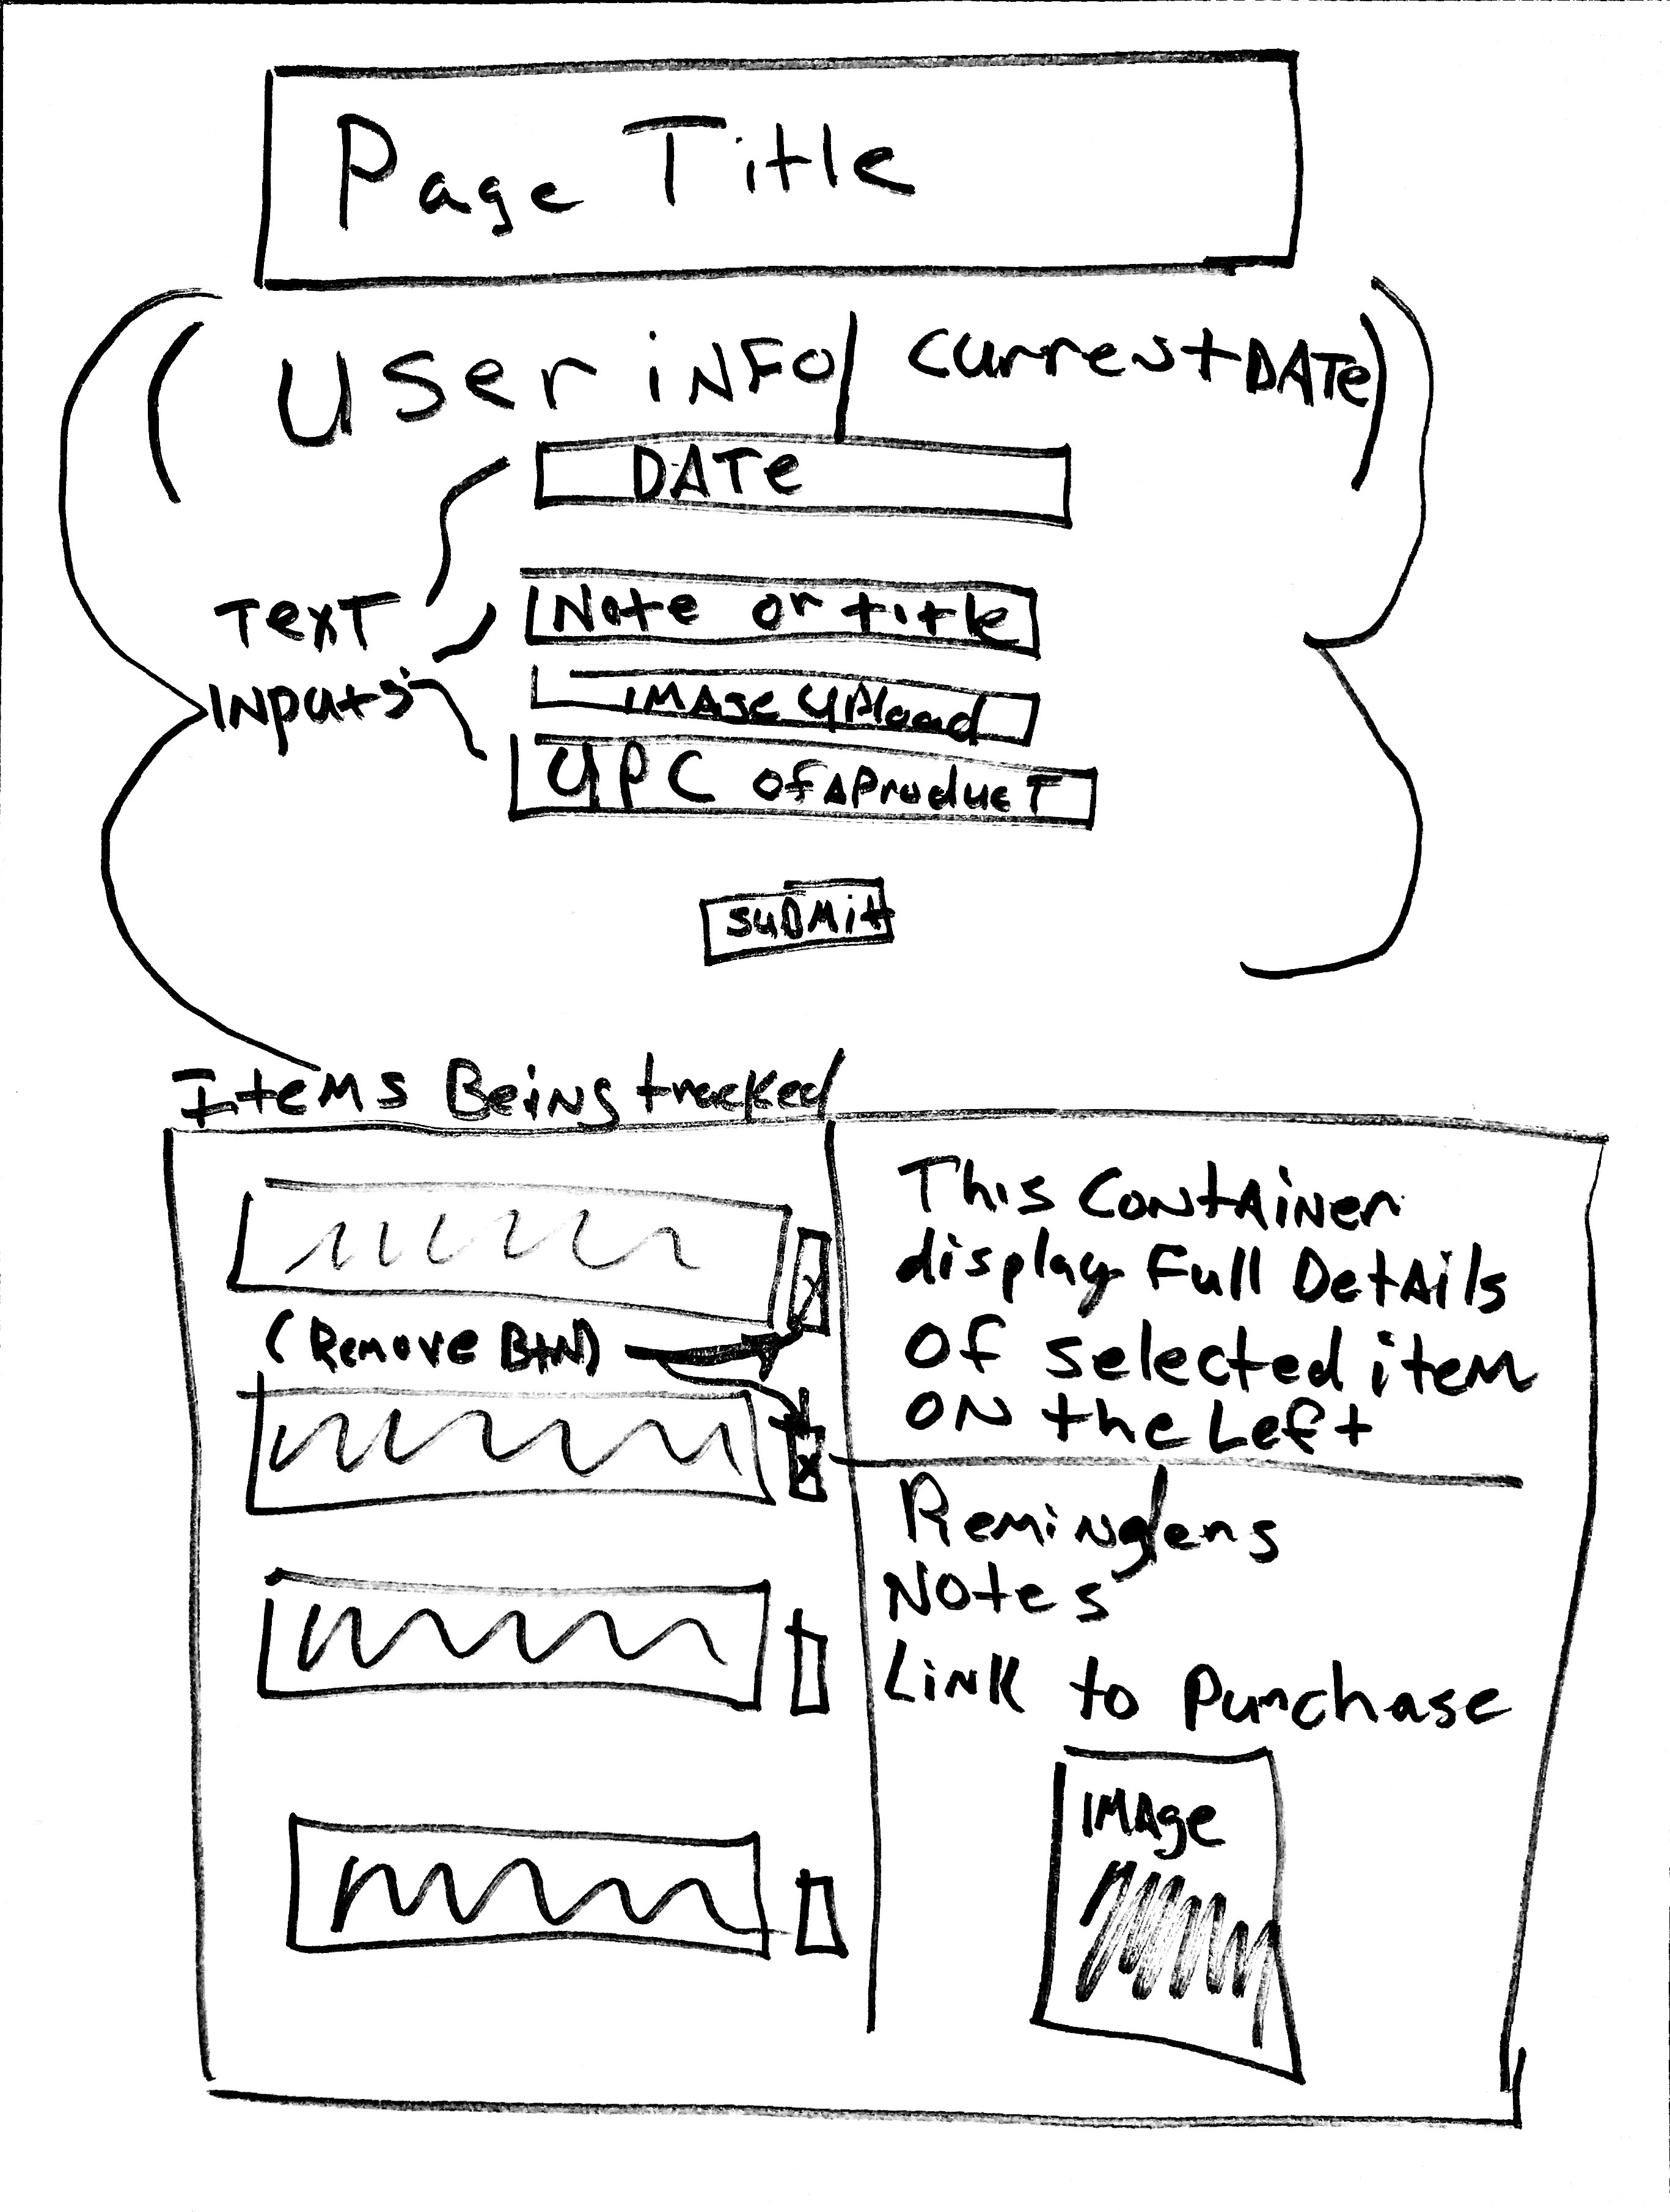 Page Title
User iNFO/ CurrentDATe
DATe
Note or title
Text
Inputs
iMAge Upload
UPC of A Product
Submit
Items Being tracked
This Container
display Full Details
Of Selected item
ON the Left
(Remove BtN)
X
X
Reminders
Notes
Link to Purchase
IMAge